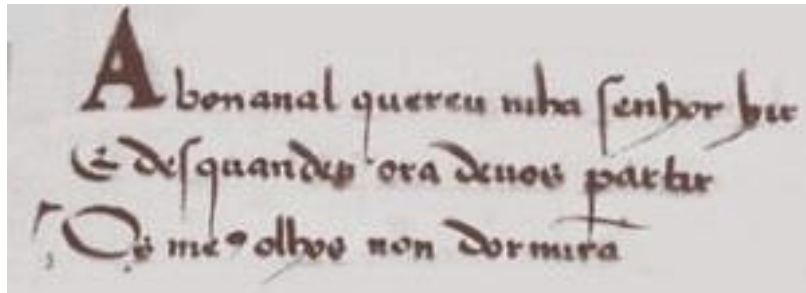 A bonanal quereu mha senhor hir
E des quandeu ora deuos partir
Os me9 olhos non dormira